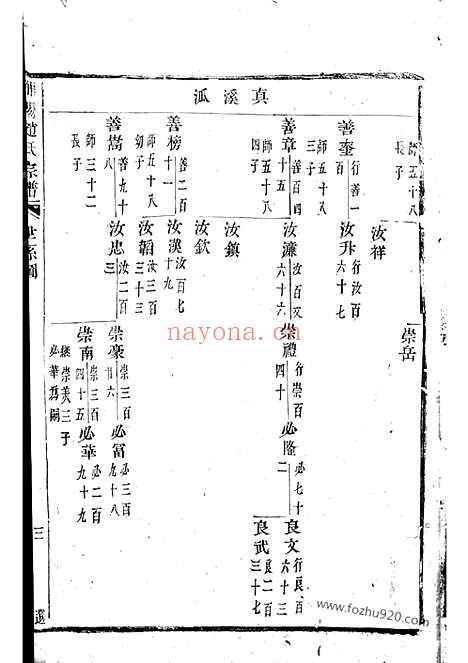 真溪派
師五十八
長子
汝祥
崇岳
善奎
行善一
百
三子
汝升
行汝百
六十七
善章
善百四
十五
師五十八
四子
汝濂
汝百又
六十六
崇禮
行崇百
四十
必隆
必七十
二
良文
行良百
六十三
良武
良二百
三十七
汝鎮
汝欽
善榜
善二百
十一
師五十八
幼子
汝漢
汝百七
十九
汝韜
汝三百
三十三
善嵩
善九十
八
師三十二
長子
汝忠
汝二百
三
崇豪
崇三百
廿六
必富
必三百
九十八
崇南
崇三百
四十五
繼崇美三子
必華為嗣
必華
必二百
九十九
趙氏宗譜
世系圖
三
nayona.cn
www.fozhu920.com